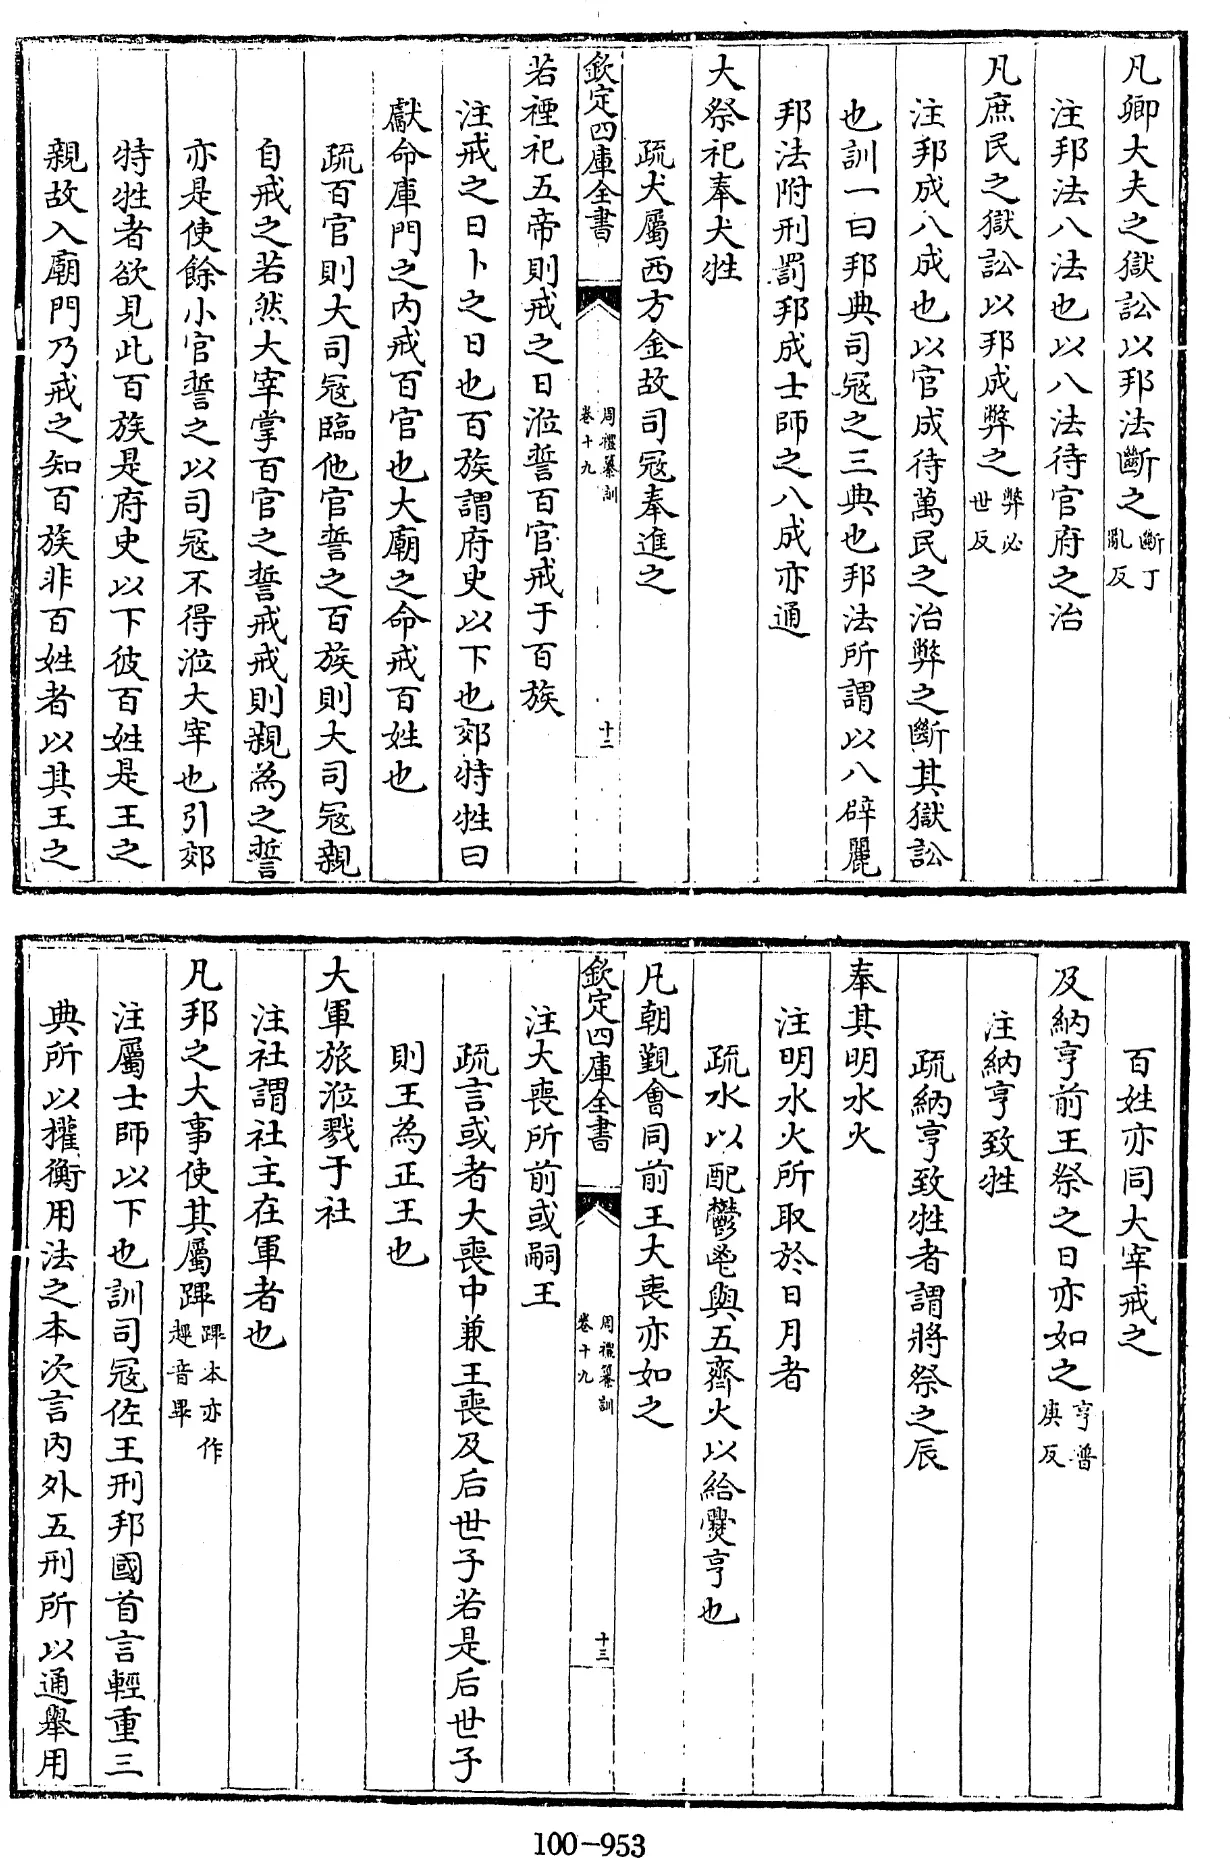 凡卿大夫之獄訟以邦法斷之斷丁亂反
注邦法八法也以八法待官府之治
凡庶民之獄訟以邦成弊之弊必世反
注邦成八成也以官成待萬民之治弊之斷其獄訟
也訓一曰邦典司冦之三典也邦法所謂以八辟麗
邦法附刑罰邦成士師之八成亦通
大祭祀奉犬牲
疏犬屬西方金故司冦奉進之
欽定四庫全書
周禮纂訓
卷十九
十二
若禋祀五帝則戒之日涖誓百官戒于百族
注戒之日卜之日也百族謂府史以下也郊特牲曰
獻命庫門之内戒百官也大廟之命戒百姓也
疏百官則大司冦臨他官誓之百族則大司冦親
自戒之若然大宰掌百官之誓戒戒則親為之誓
亦是使餘小官誓之以司冦不得涖大宰也引郊
特牲者欲見此百族是府史以下彼百姓是王之
親故入廟門乃戒之知百族非百姓者以其王之
百姓亦同大宰戒之
及納亨前王祭之日亦如之亨普庚反
注納亨致牲
疏納亨致牲者謂將祭之辰
奉其明水火
注明水火所取於日月者
疏水以配鬱鬯與五齊火以給爨亨也
凡朝覲會同前王大喪亦如之
欽定四庫全書
周禮纂訓
卷十九
十三
注大喪所前或嗣王
疏言或者大喪中兼王喪及后世子若是后世子
則王為正王也
大軍旅涖戮于社
注社謂社主在軍者也
凡邦之大事使其屬蹕蹕本亦作趩音畢
注屬士師以下也訓司冦佐王刑邦國首言輕重三
典所以權衡用法之本次言内外五刑所以通舉用
100-953